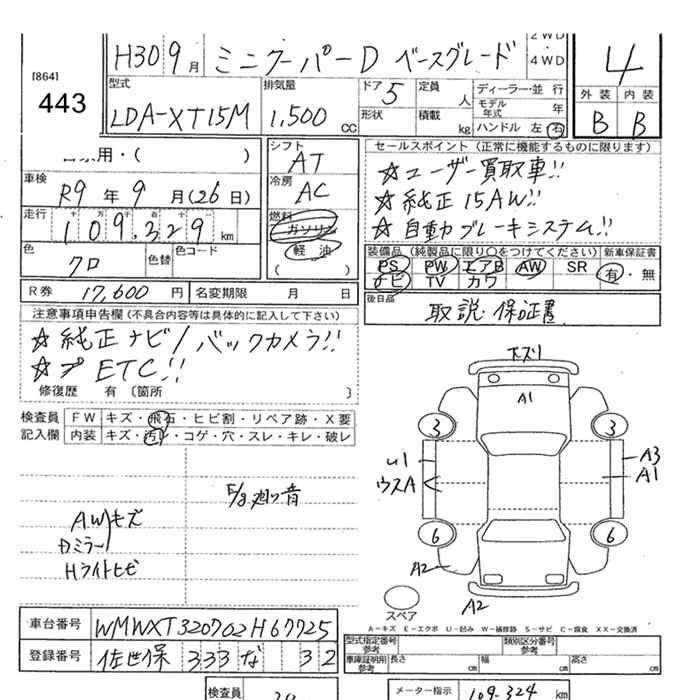 H30 9月 ミニクーパーD ベースグレード 2WD・4WD
[864]
443
型式 LDA-XT15M
排気量 1,500 cc
ドア 5
形状
定員 人
積載 kg
ディーラー・並行
モデル年式 年
ハンドル 左 右
4
外装 内装
B B
家用・( )
車検 R9年9月(26日)
走行 109,329 km
色 クロ 色替 色コード
シフト AT
冷房 AC
燃料 ガソリン
軽油
( )
セールスポイント (正常に機能するものに限ります)
☆ユーザー買取車!!
☆純正15AW!!
☆自動ブレーキシステム!!
装備品 (純製品に限り○をつけてください) 新車保証書
PS PW エアB AW SR 有・無
ナビ TV カワ
後日品 取説 保証書
R券 17,600円 名変期限 月 日
注意事項申告欄 (不具合内容等は具体的に記入して下さい)
☆純正ナビ/バックカメラ!!
ETC!!
修復歴 有〔箇所 〕
検査員記入欄
FW キズ・飛石・ヒビ割・リペア跡・X要
内装 キズ・汚れ・コゲ・穴・スレ・キレ・破レ
AWキズ
カミラー
Hライトヒビ
A1
3 3
ウスA
A3
A1
6 6
A2
A2
スペア
A-キズ E-エクボ U-凹み W-補修跡 S-サビ C-腐食 XX-交換済
車台番号 WMWXT320702H67725
登録番号 佐世保 333 な 32
型式指定番号 参考
類別区分番号 参考
車庫証明用 参考 長さ cm 幅 cm 高さ cm
検査員
メーター指示 109,324 km